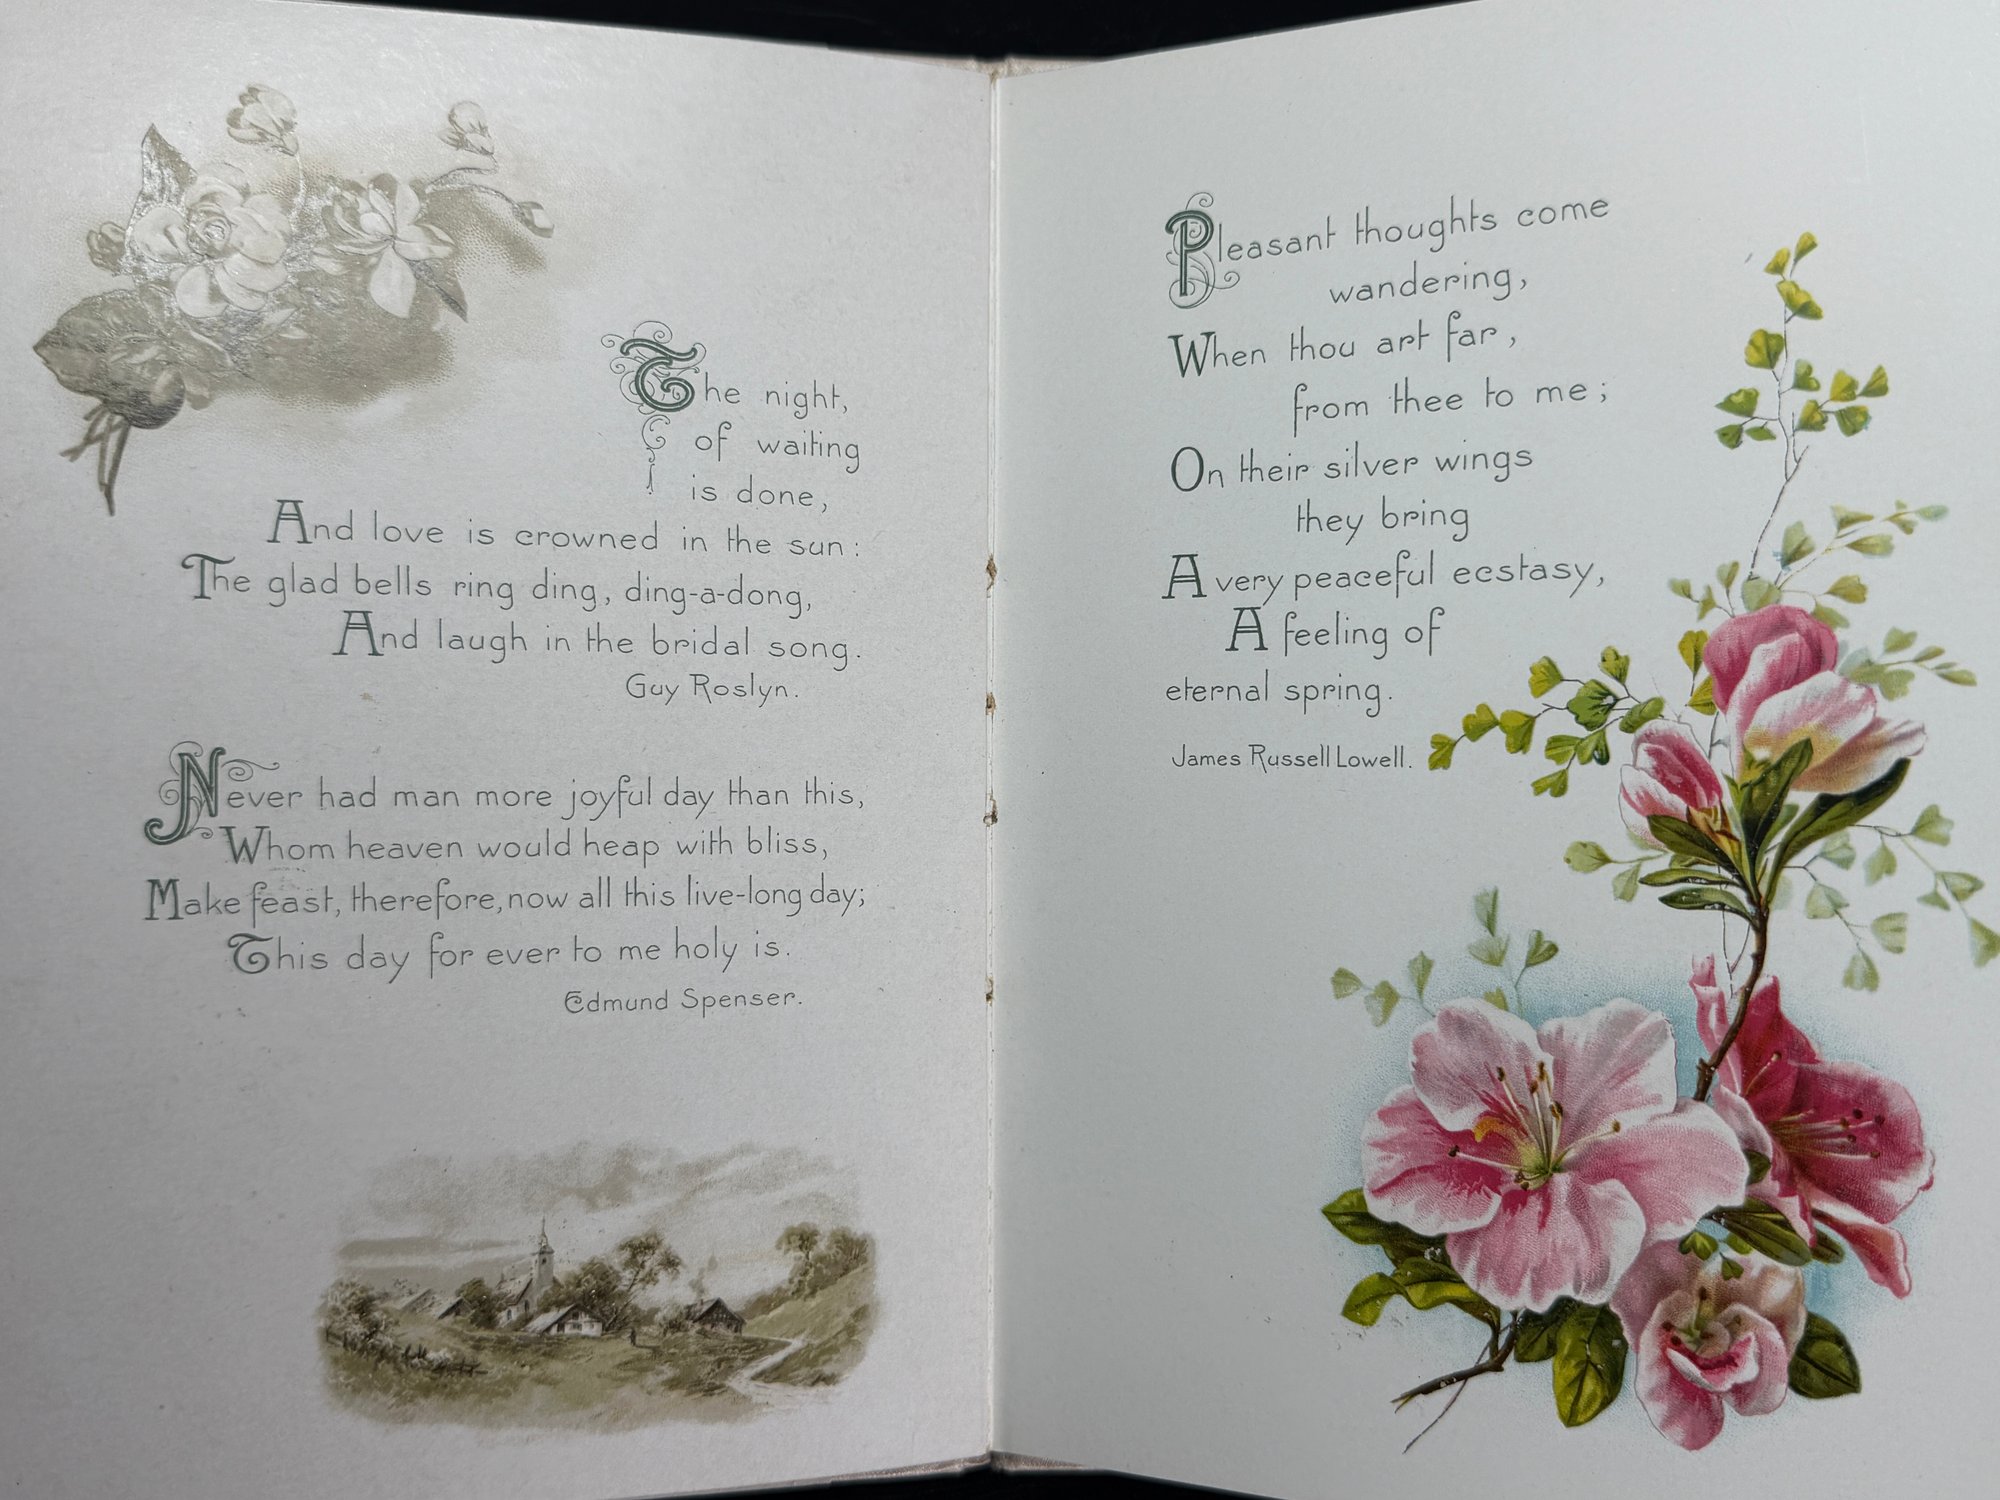 The night,
of waiting
is done,
And love is crowned in the sun:
The glad bells ring ding, ding-a-dong,
And laugh in the bridal song.
Guy Roslyn.
Never had man more joyful day than this,
Whom heaven would heap with bliss,
Make feast, therefore, now all this live-long day;
This day for ever to me holy is.
Edmund Spenser.
Pleasant thoughts come
wandering,
When thou art far,
from thee to me;
On their silver wings
they bring
A very peaceful ecstasy,
A feeling of
eternal spring.
James Russell Lowell.